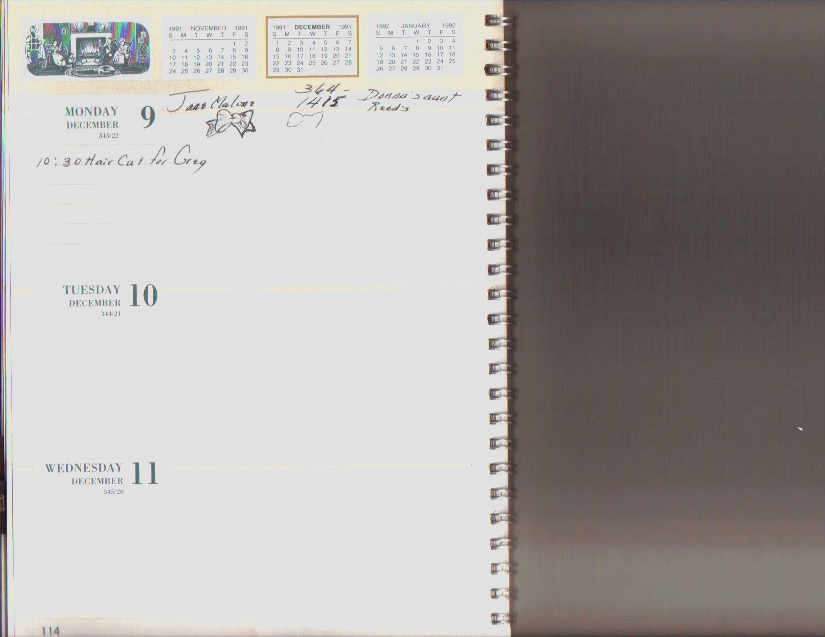 1991 NOVEMBER 1991
S M T W T F S
1 2
3 4 5 6 7 8 9
10 11 12 13 14 15 16
17 18 19 20 21 22 23
24 25 26 27 28 29 30
1991 DECEMBER 1991
S M T W T F S
1 2 3 4 5 6 7
8 9 10 11 12 13 14
15 16 17 18 19 20 21
22 23 24 25 26 27 28
29 30 31
1992 JANUARY 1992
S M T W T F S
1 2 3 4
5 6 7 8 9 10 11
12 13 14 15 16 17 18
19 20 21 22 23 24 25
26 27 28 29 30 31
Jane Malone
364-
1415
Donna's aunt
Reed's
MONDAY 9
DECEMBER
343/22
10:30 Hair Cut for Greg
TUESDAY 10
DECEMBER
344/21
WEDNESDAY 11
DECEMBER
345/20
114